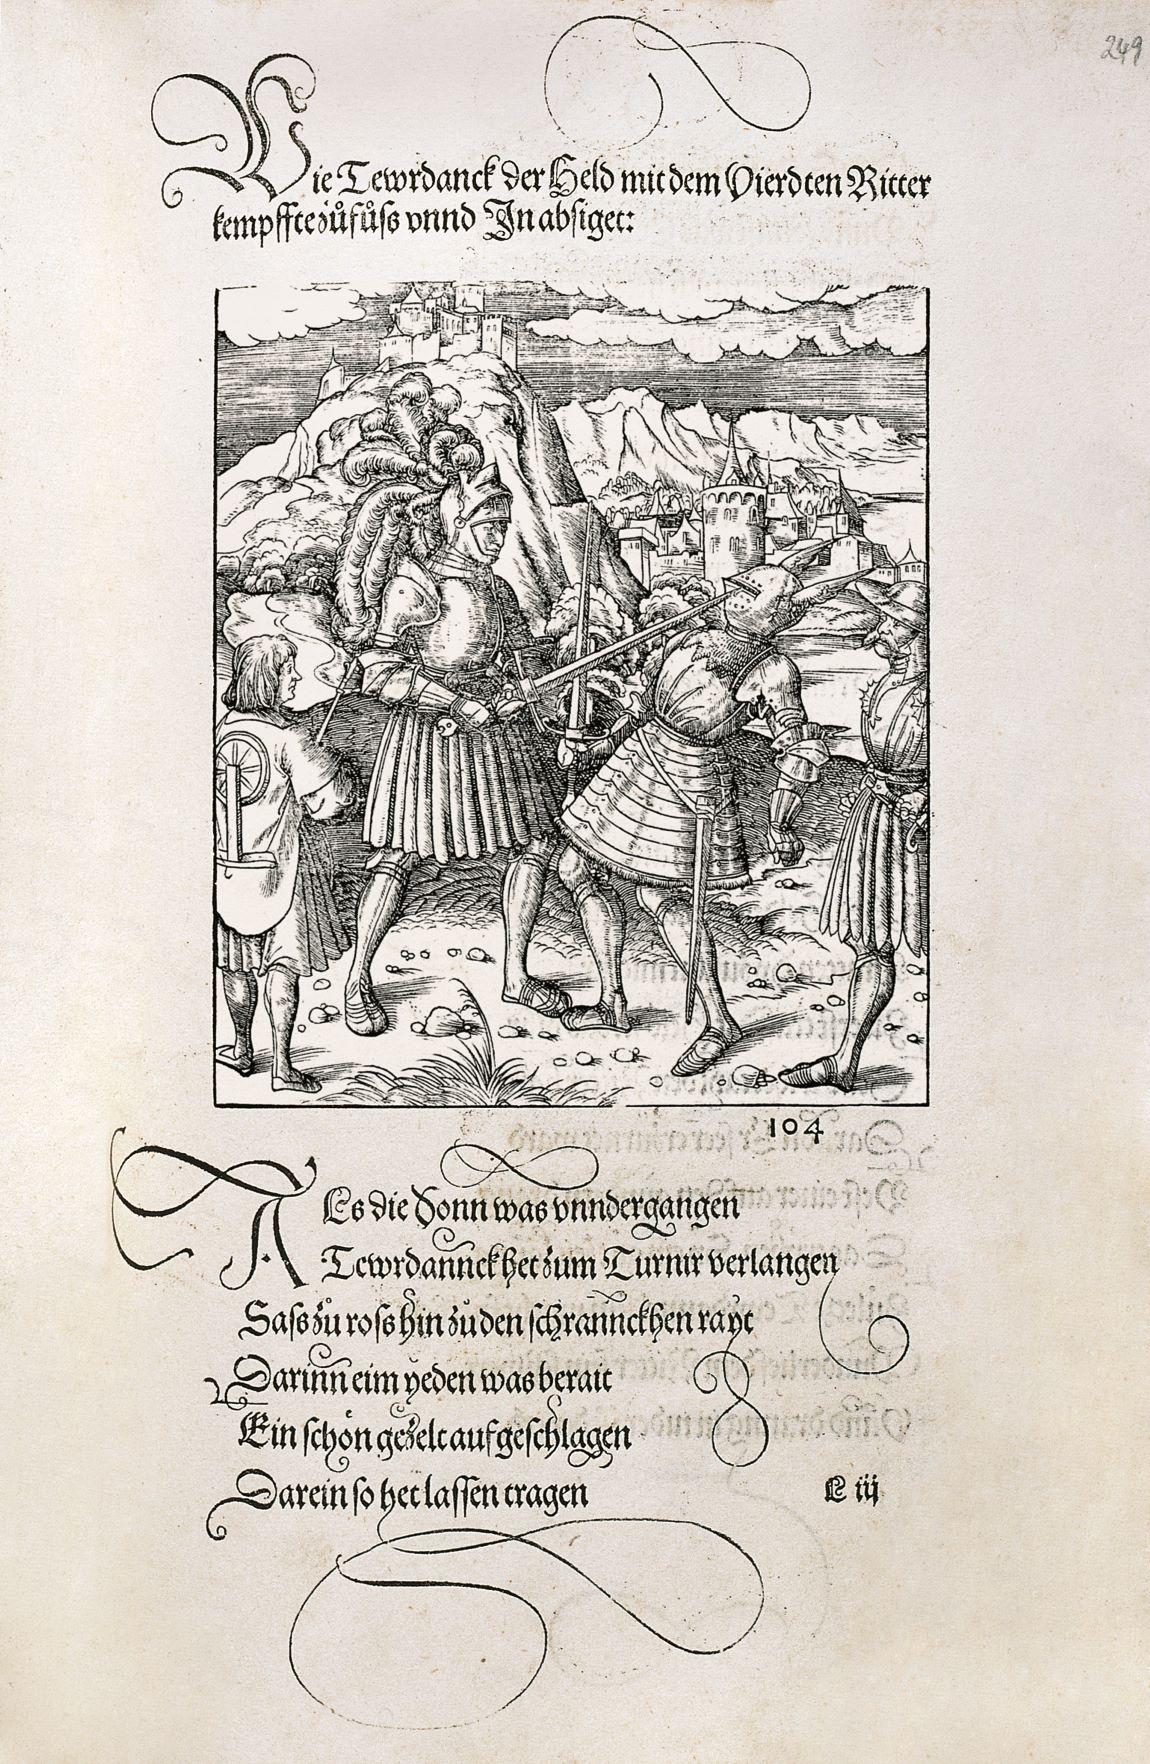 249
Wie Tewrdanck der Held mit dem Vierdten Ritter
kempffte zuͦ fuͦß vnnd In absiget:
104
ALs die Sonn was vnndergangen
Tewrdannck het zum Turnir verlangen
Saß zuͦ roß hin zuͦ den schrannckhen rayt
Darinn eim yeden was berait
Ein schön gezelt aufgeschlagen
Darein so het lassen tragen
L iij